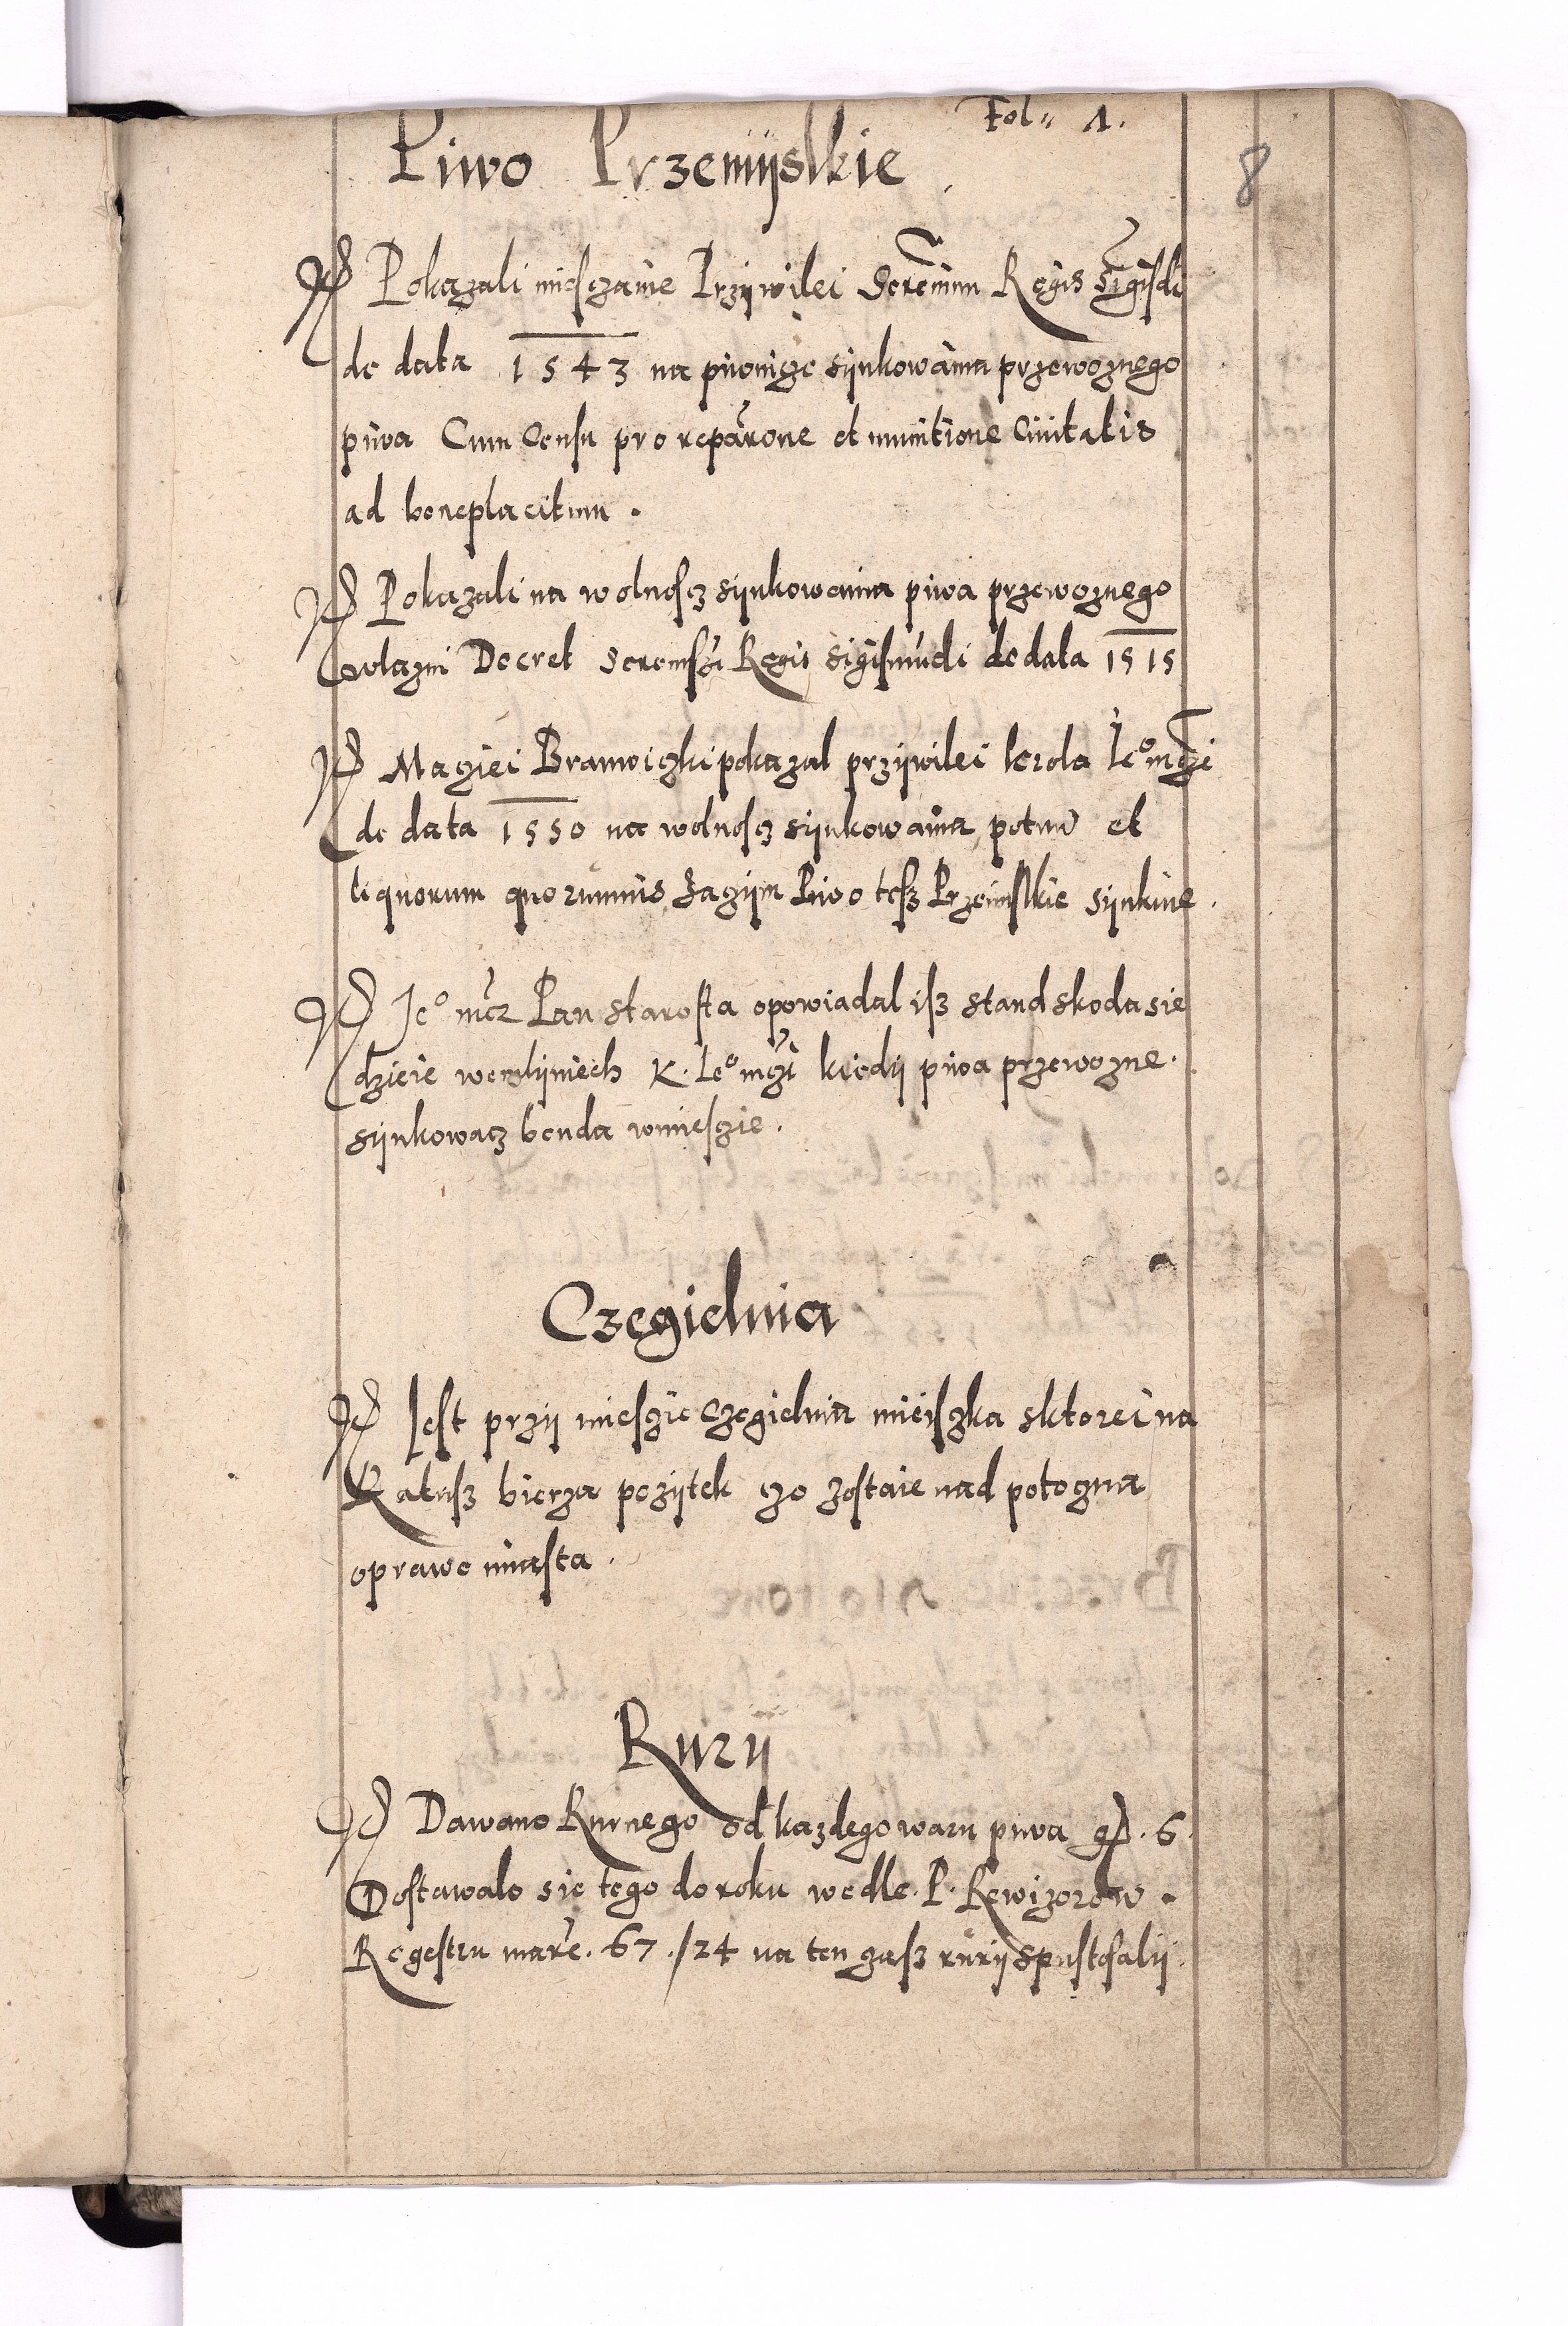 Fol. 1.
8
Piwo Przemijslkie
Pokazali miesczanie Przijwilei Serenimi Regis Sigisdi
de data 1543 na piwnicze sijnkowania przewoznego
piwa Cum Censu pro reparone et munitione Ciuitatis
ad beneplacitum.
Pokazali na wolnoscz sijnkowania piwa przewoznego
Decret Serenissi Regis Sigismudi de data 1515
Maciei Branwiczki pokazal przijwilei krola Je° mczi
de data 1550 na wolnoscz sijnkowania potuu et
liquorum quorumuis zaczijm Piwo tesz Przemislkie sijnkuie.
Je° mcz Pan starosta opowiadal isz stand skoda sie
dzieie wemlijniech K. Je° mczi kiedij piwa przewozne.
sijnkowacz benda wmiesczie.
Czegielnia
Jest przij miesczie czegielnia mieiszka sktorei na
Ratusz bierza pozijtek czo zostaie nad potoczna
oprawe miasta.
Rurij
Dawano Rurnego od kazdego waru piwa gr. 6.
Dostawalo sie tego do roku wedle. P. Rewizorow.
Regestru marc. 67./24 na ten czasz rurij spustosalij.